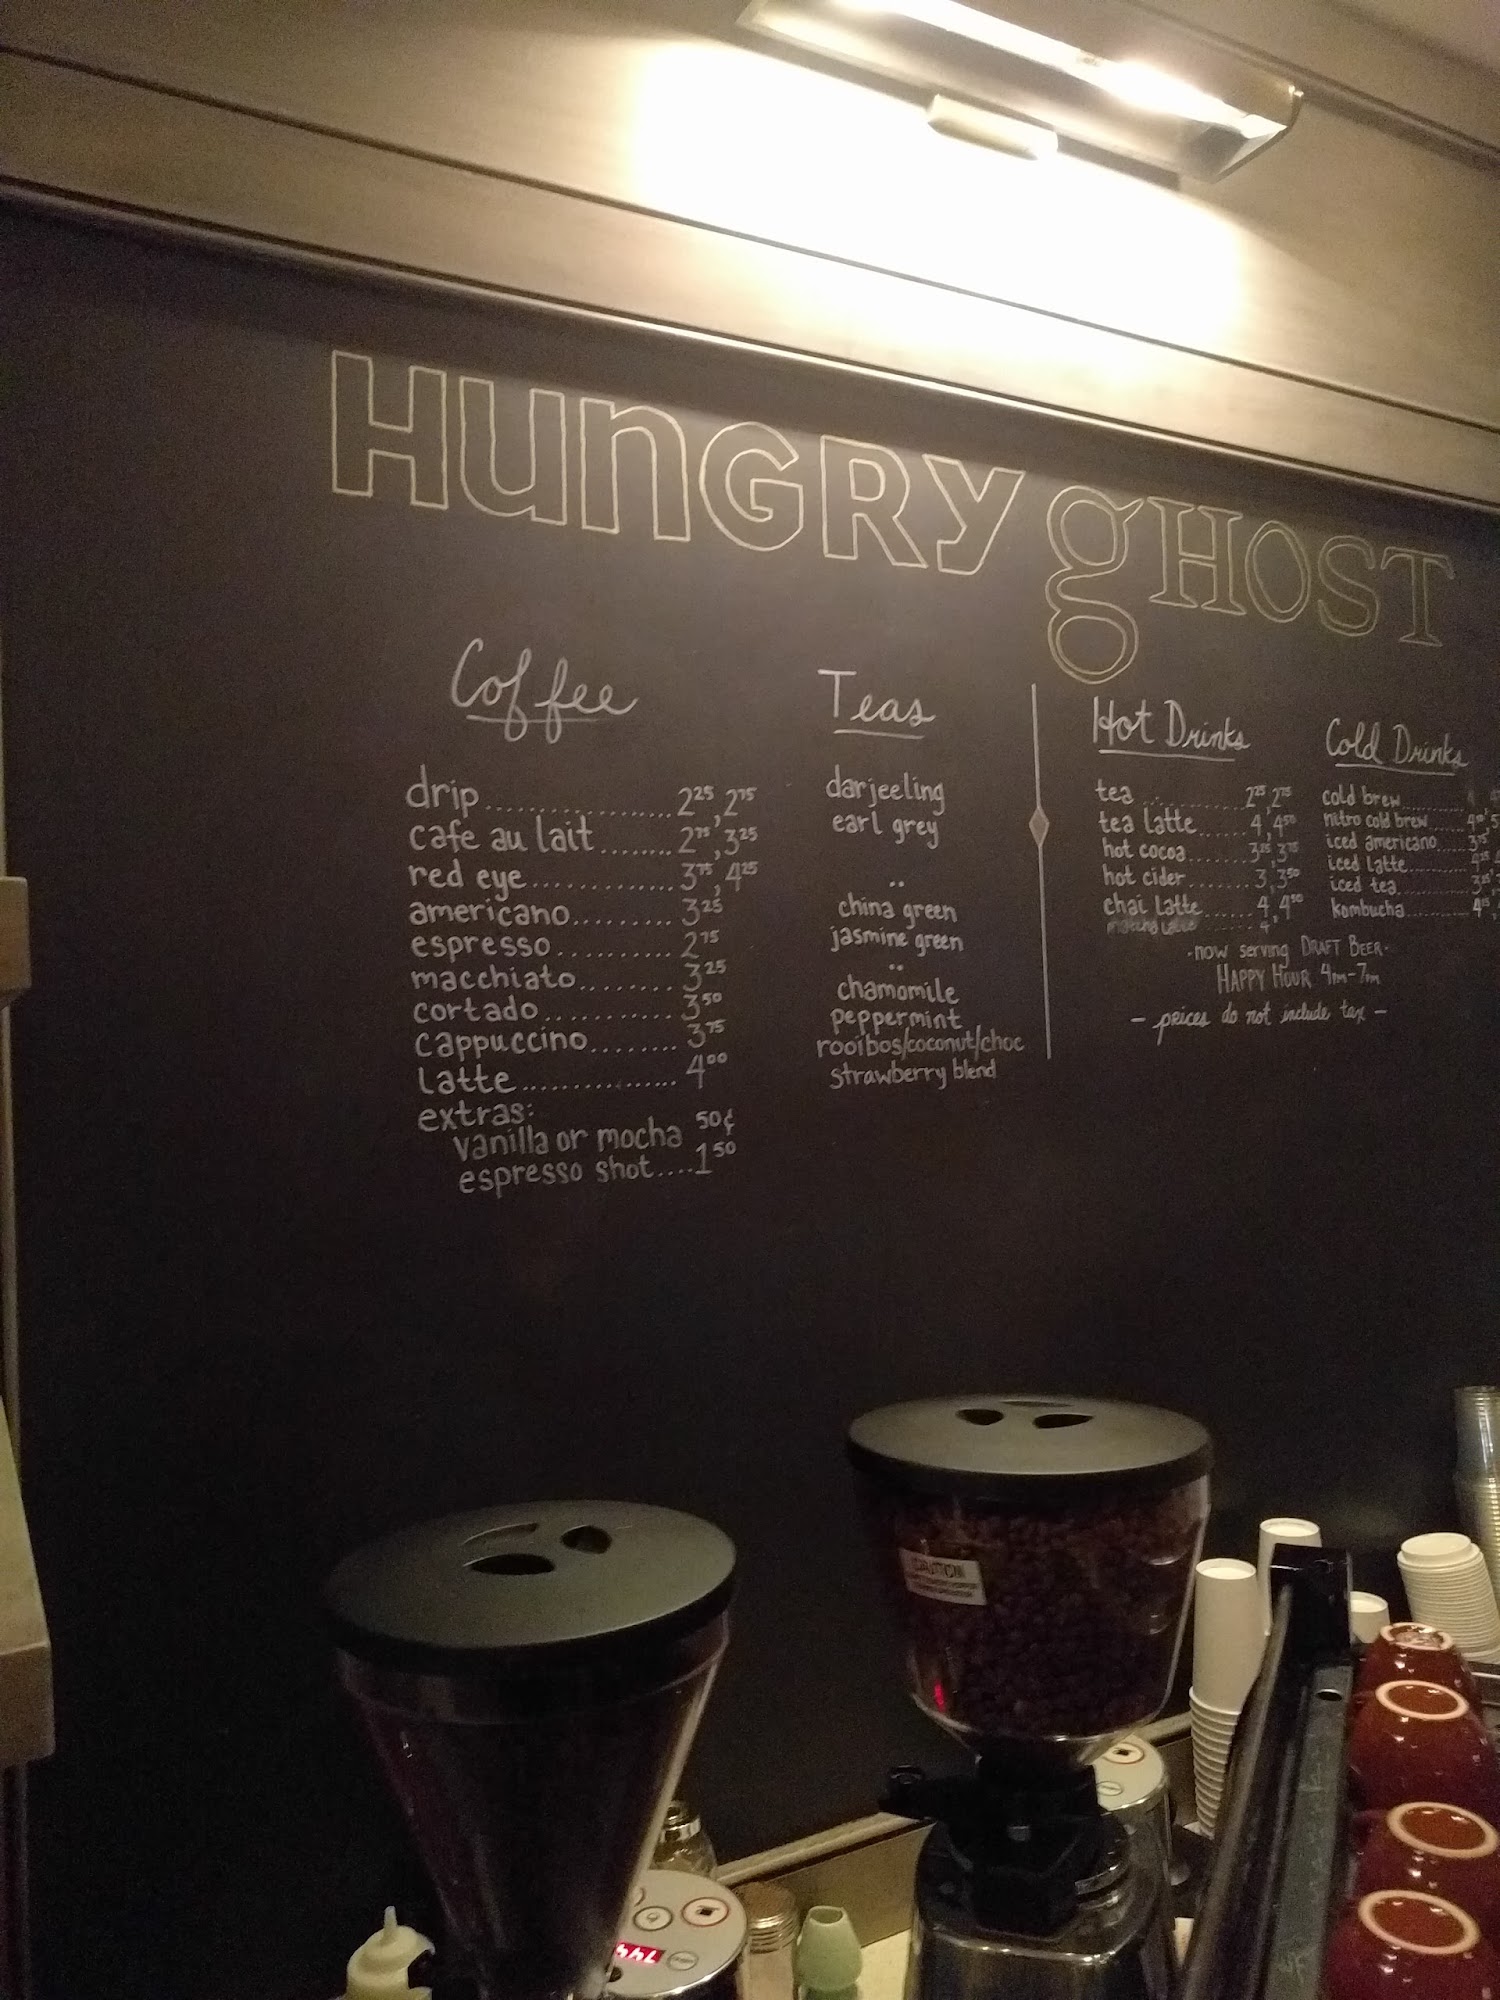 HUNGRY gHOST
Coffee
drip.................2²⁵, 2⁷⁵
cafe au lait........2⁷⁵, 3²⁵
red eye.............3⁷⁵, 4²⁵
americano.........3²⁵
espresso..........2⁷⁵
macchiato........3²⁵
cortado............3⁵⁰
cappuccino........3⁷⁵
latte................4⁰⁰
extras:
vanilla or mocha 50¢
espresso shot....1⁵⁰
Teas
darjeeling
earl grey
china green
jasmine green
chamomile
peppermint
rooibos/coconut/choc
strawberry blend
Hot Drinks
tea.............2²⁵, 2⁷⁵
tea latte......4, 4⁵⁰
hot cocoa.......3²⁵, 3⁷⁵
hot cider.......3, 3⁵⁰
chai latte......4, 4⁵⁰
Cold Drinks
cold brew
nitro cold brew
iced americano
iced latte
iced tea
kombucha
·now serving DRAFT BEER·
HAPPY HOUR 4PM-7PM
- prices do not include tax -
CAUTION